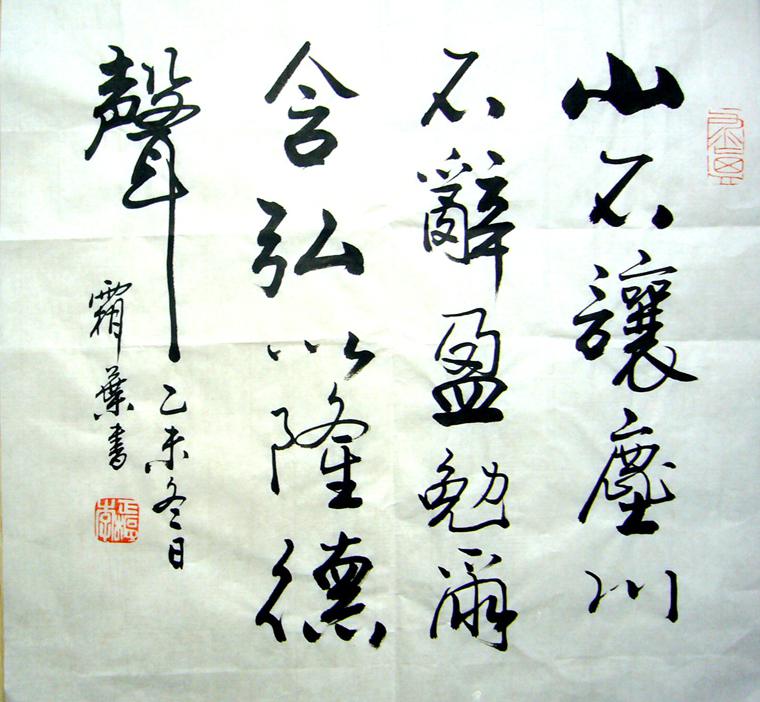 山不讓塵川
不辭盈勉爾
含弘以隆德
聲
乙未冬日
霜葉書